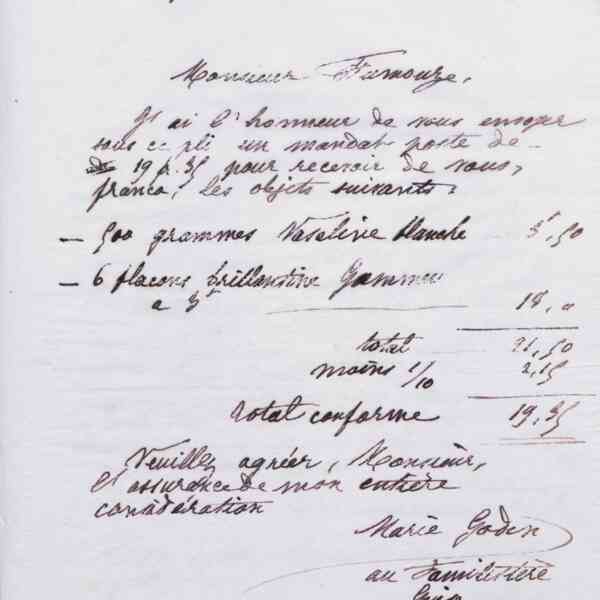 Monsieur Fumouze,
J'ai l'honneur de vous envoyer
sous ce pli un mandat-poste de
19 f. 35 pour recevoir de vous,
franco, les objets suivants :
— 500 grammes Vaseline blanche 3f,50
— 6 flacons brillantine
a 3f 18,"
total 21,50
moins 1/10 2,15
total conforme 19,35
Veuillez agréer, Monsieur,
l'assurance de mon entière
considération
Marie Godin
au Familistère
Guise